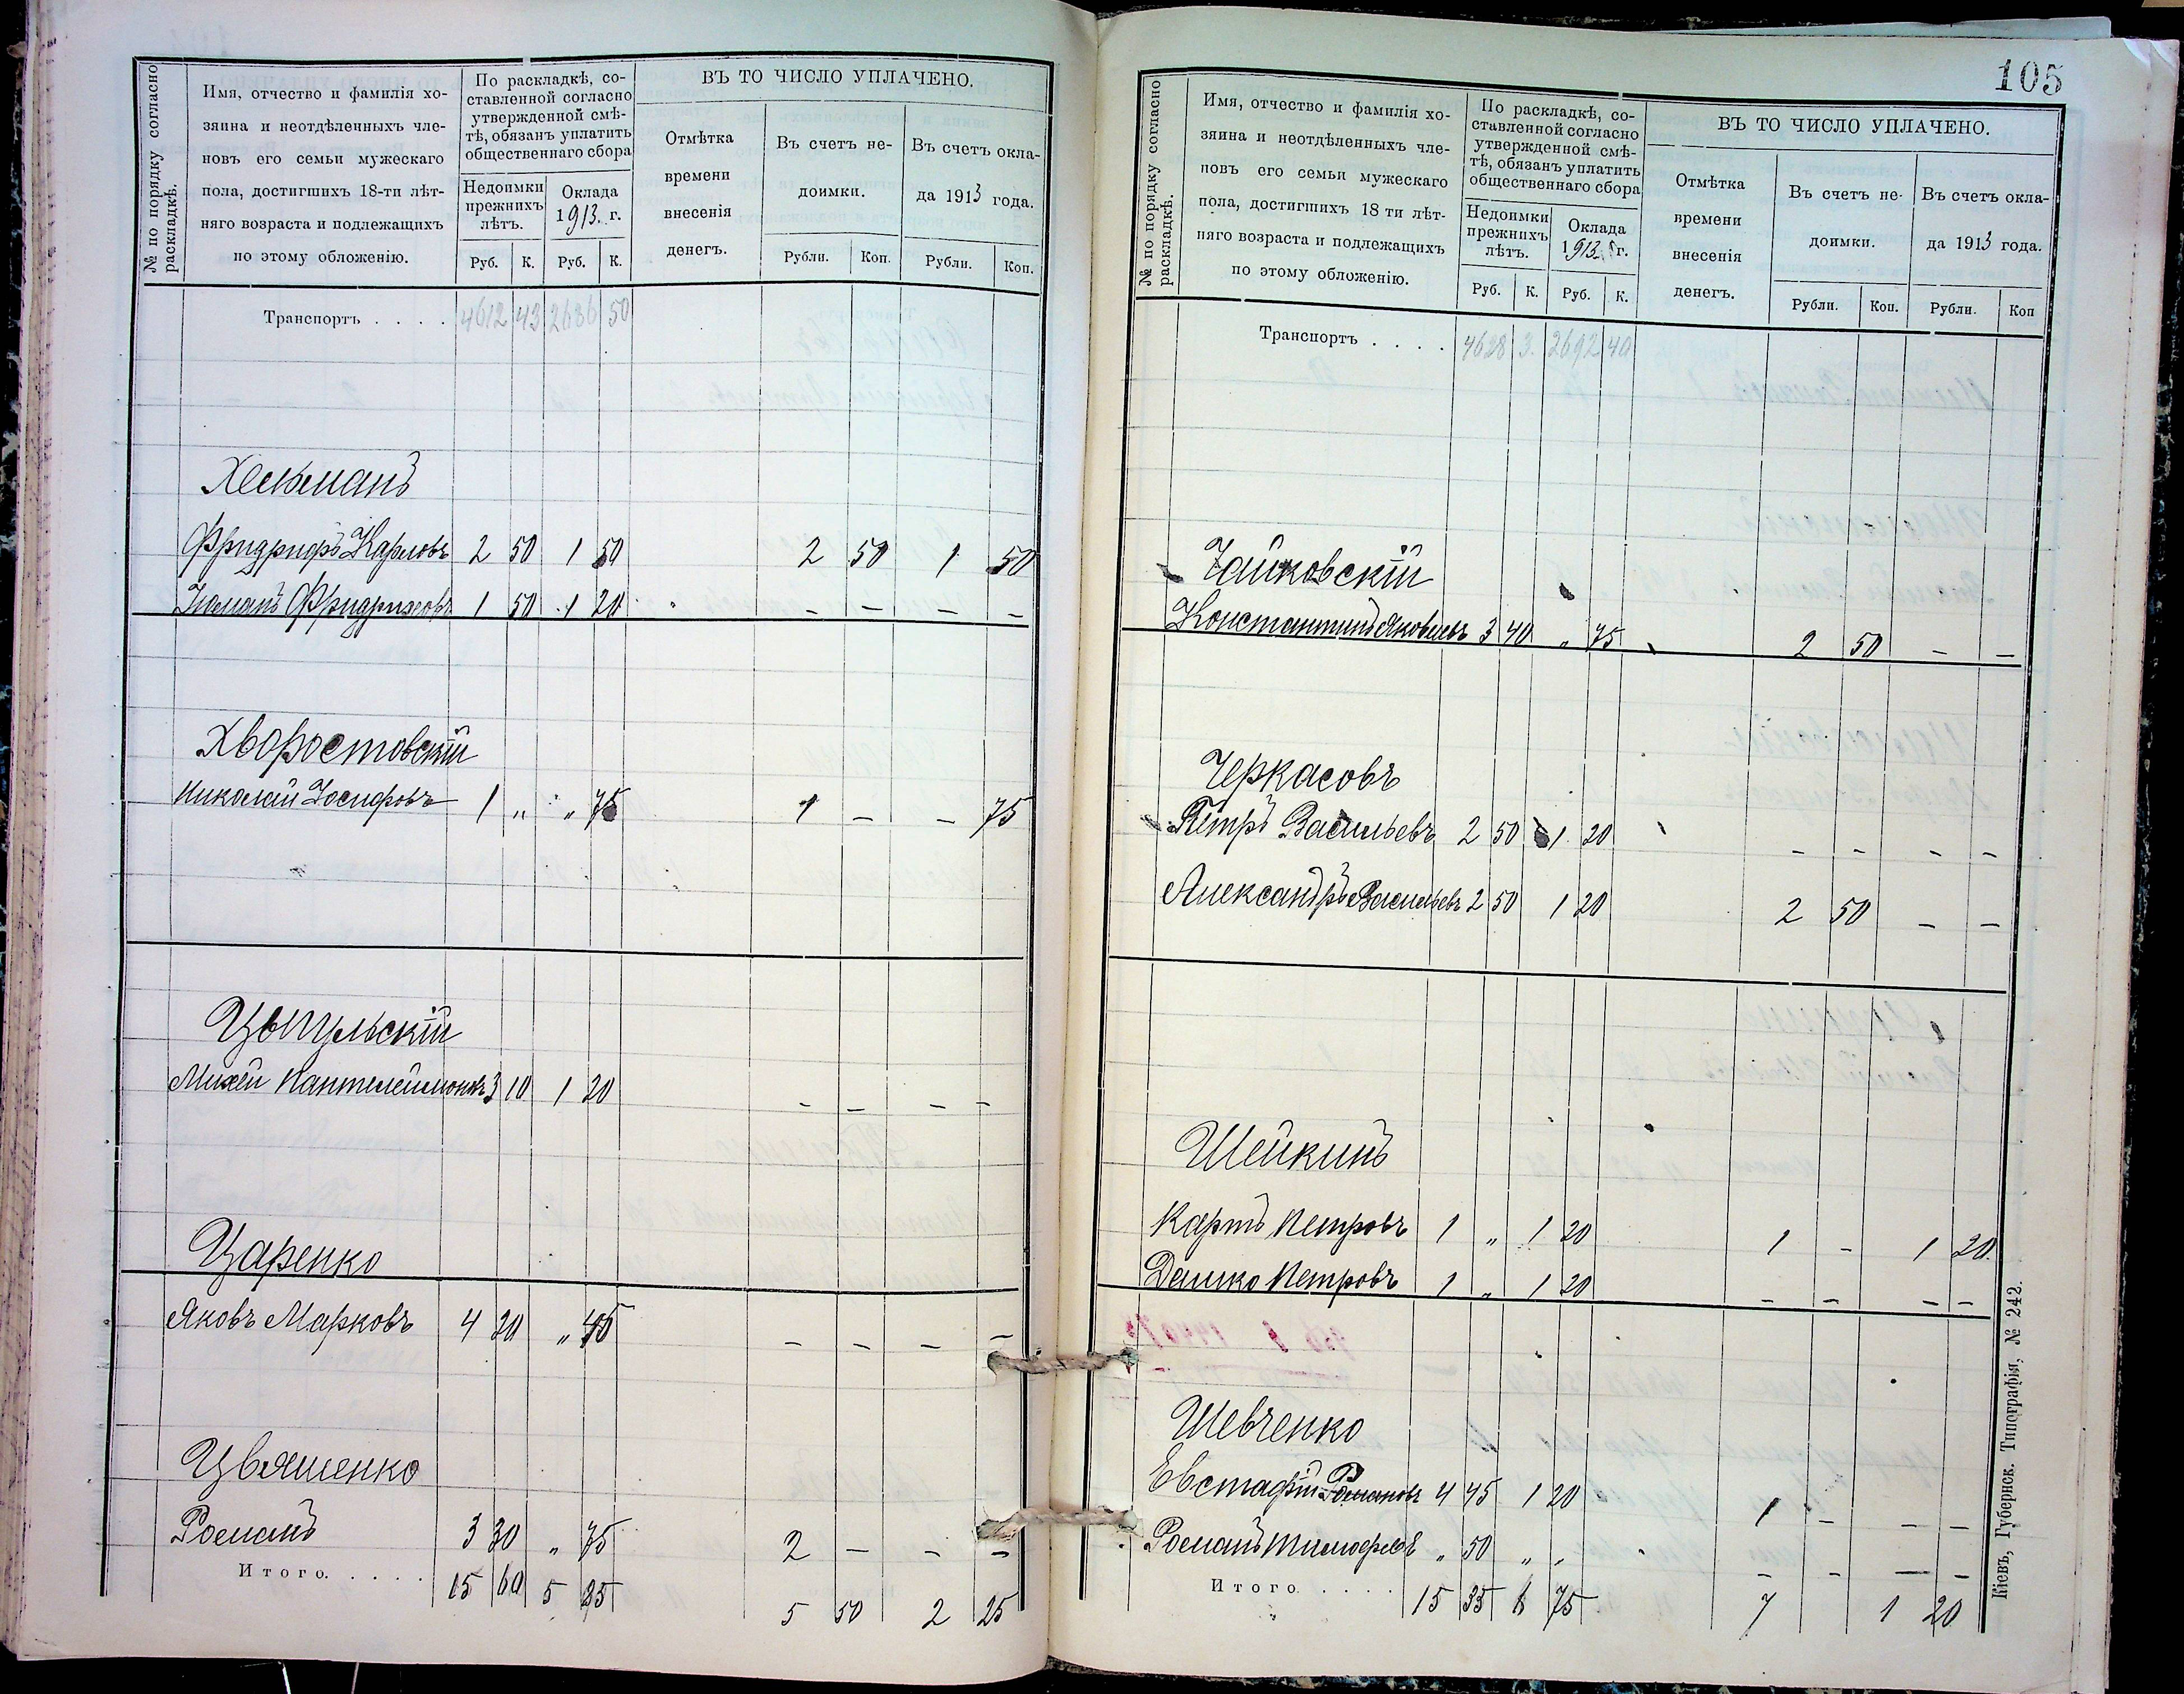 № по порядку согласно раскладкѣ.
Имя, отчество и фамилія хо-
зяина и неотдѣленныхъ чле-
новъ его семьи мужескаго
пола, достигшихъ 18-ти лѣт-
няго возраста и подлежащихъ
по этому обложенію.
По раскладкѣ, со-
ставленной согласно
утвержденной смѣ-
тѣ, обязанъ уплатить
общественнаго сбора
Недоимки
прежнихъ
лѣтъ.
Оклада
1913 г.
Руб. К. Руб. К.
ВЪ ТО ЧИСЛО УПЛАЧЕНО.
Отмѣтка
времени
внесенія
денегъ.
Въ счетъ не-
доимки.
Въ счетъ окла-
да 1913 года.
Рубли. Коп. Рубли. Коп.
Транспортъ . . . . 4612 43 2686 50
Фридрифъ Карловъ 2 50 1 50 2 50 1 50
Фридриховъ 1 50 1 20 " – – – –
Хворостовскій
Николай Іосифовъ 1 " " 75 1 – – 75
Цыпульскій
Михей 3 10 1 20 – – – –
Царенко
Яковъ Марковъ 4 20 " 45 – – – –
Цвяшенко
Романъ 3 30 " 75 2 – – –
Итого. . . . . 15 60 5 85 5 50 2 25
105
№ по порядку согласно раскладкѣ.
Имя, отчество и фамилія хо-
зяина и неотдѣленныхъ чле-
новъ его семьи мужескаго
пола, достигшихъ 18 ти лѣт-
няго возраста и подлежащихъ
по этому обложенію.
По раскладкѣ, со-
ставленной согласно
утвержденной смѣ-
тѣ, обязанъ уплатить
общественнаго сбора
Недоимки
прежнихъ
лѣтъ.
Оклада
1913 г.
Руб. К. Руб. К.
ВЪ ТО ЧИСЛО УПЛАЧЕНО.
Отмѣтка
времени
внесенія
денегъ.
Въ счетъ не-
доимки.
Въ счетъ окла-
да 1913 года.
Рубли. Коп. Рубли. Коп
Транспортъ . . . . 4628 3 2692 40
Чайковскій
Константинъ Яковлевъ 3 40 " 75 2 50 – –
Черкасовъ
Петръ Васильевъ 2 50 1 20 – – – –
Александръ Васильевъ 2 50 1 20 2 50 – –
Шейкинъ
Карпъ Петровъ 1 " 1 20 1 – 1 20
Петровъ 1 " 1 20 – – – –
Шевченко
Евстафій Романовъ 4 45 1 20 1 – – –
Романъ Тимофеевъ " 50 " " – – – –
Итого . . . . 15 35 6 75 7 1 20
Кіевъ, Губернск. Типографія, № 242.